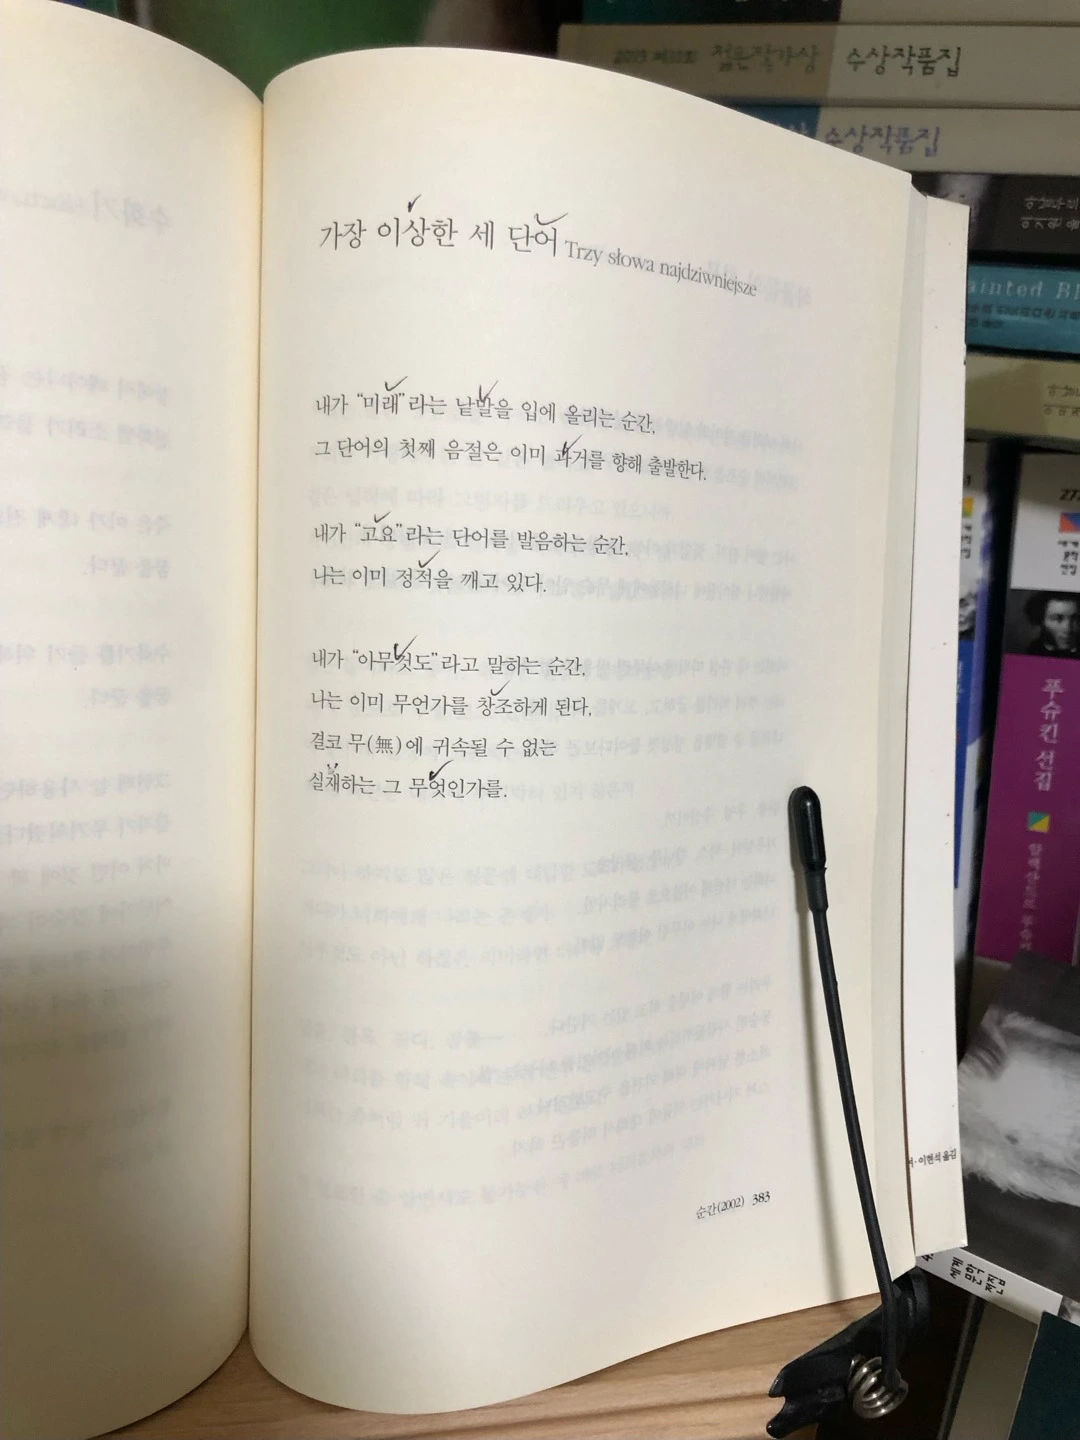 가장 이상한 세 단어 Trzy słowa najdziwniejsze
내가 “미래”라는 낱말을 입에 올리는 순간,
그 단어의 첫째 음절은 이미 과거를 향해 출발한다.
내가 “고요”라는 단어를 발음하는 순간,
나는 이미 정적을 깨고 있다.
내가 “아무것도”라고 말하는 순간,
나는 이미 무언가를 창조하게 된다,
결코 무(無)에 귀속될 수 없는
실재하는 그 무엇인가를.
순간(2002) 383
젊은작가상 수상작품집
수상작품집
ainted Bi
푸슈킨 선집
알렉산드르 푸슈킨
이현석 옮김
세계
문학
전집